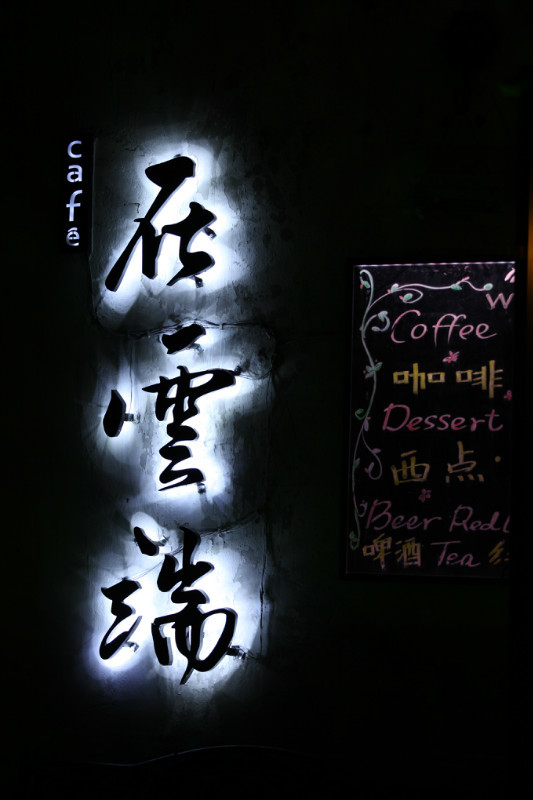 café
在
雲
端
Coffee
咖啡
Dessert
西点
Beer Red
啤酒 Tea